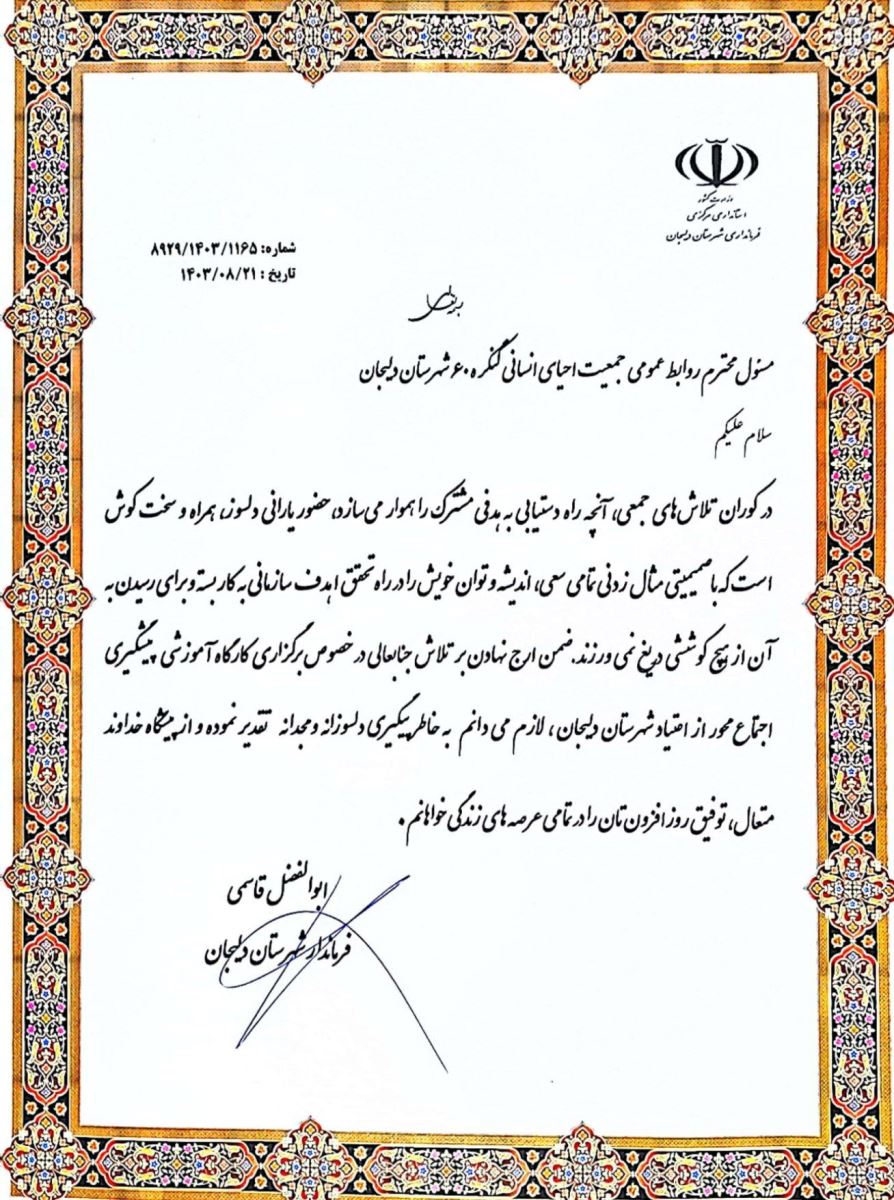 وزارت کشور
استانداری مرکزی
فرمانداری شهرستان دلیجان
شماره: ۸۹۲۹/۱۴۰۳/۱۱۶۵
تاریخ : ۱۴۰۳/۰۸/۲۱
بسمه تعالی
مسئول محترم روابط عمومی جمعیت احیای انسانی کنگره ۶۰ شهرستان دلیجان
سلام علیکم
در کوران تلاش‌های جمعی، آنچه راه دستیابی به هدفی مشترک را هموار می‌سازد، حضور یارانی دلسوز، همراه و سخت کوش
است که با صمیمیتی مثال زدنی تمامی سعی، اندیشه و توان خویش را در راه تحقق اهدف سازمانی به کار بسته و برای رسیدن به
آن از هیچ کوششی دریغ نمی ورزند. ضمن ارج نهادن بر تلاش جنابعالی در خصوص برگزاری کارگاه آموزشی پیشگیری
اجتماع محور از اعتیاد شهرستان دلیجان ، لازم می دانم به خاطر پیگیری دلسوزانه و مجدانه تقدیر نموده و از پیشگاه خداوند
متعال، توفیق روز افزون تان را در تمامی عرصه های زندگی خواهانم .
ابوالفضل قاسمی
فرماندار شهرستان دلیجان